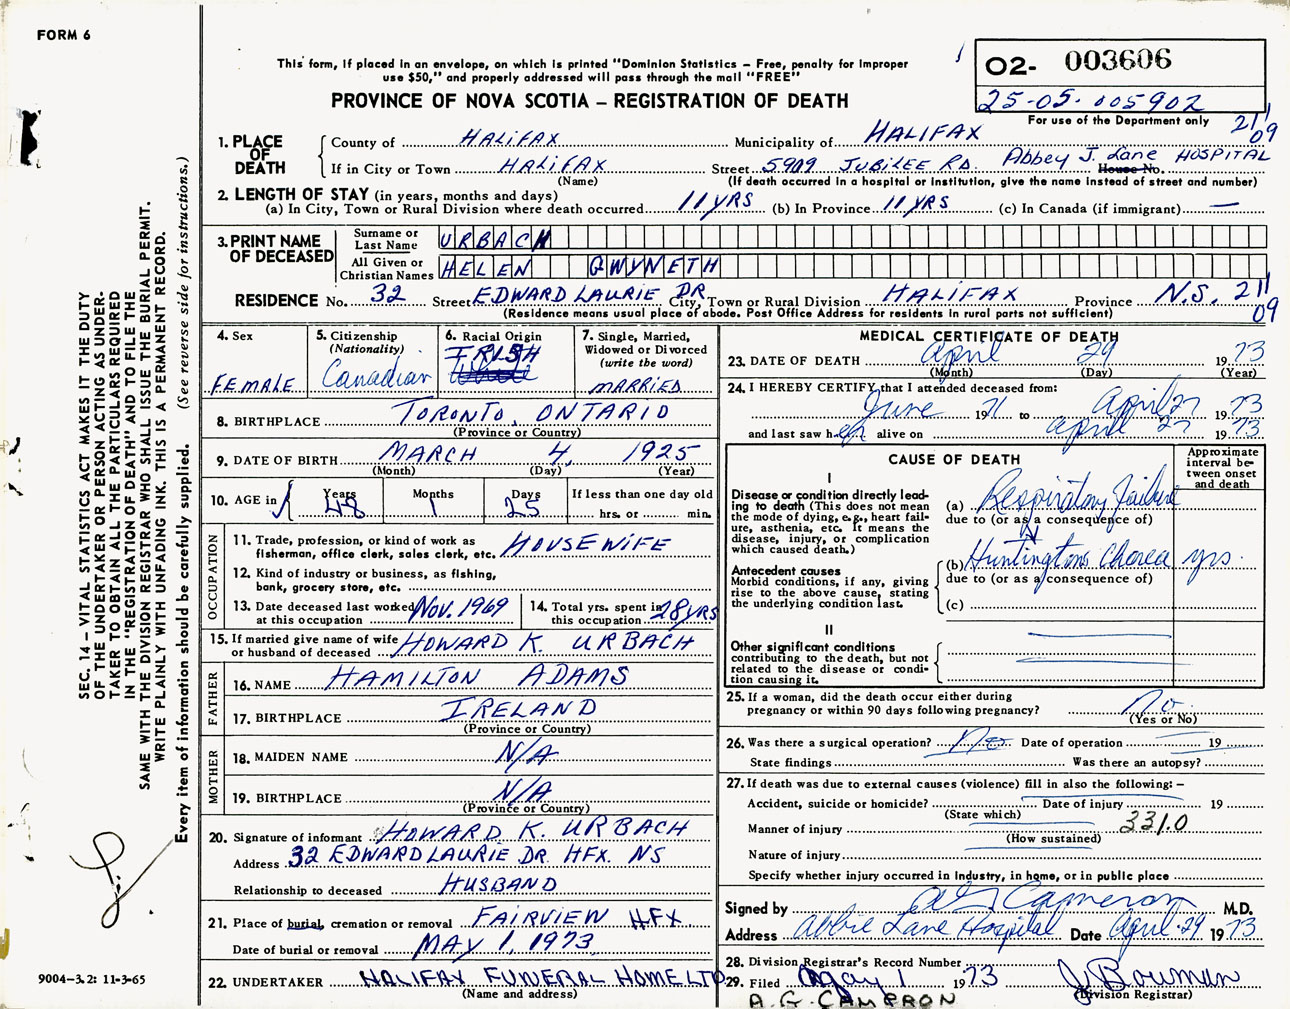 FORM 6
This form, if placed in an envelope, on which is printed "Dominion Statistics – Free, penalty for improper
use $50," and properly addressed will pass through the mail "FREE"
PROVINCE OF NOVA SCOTIA – REGISTRATION OF DEATH
02- 003606
25-05-005902
For use of the Department only
211
09
1. PLACE OF DEATH
County of HALIFAX Municipality of HALIFAX
If in City or Town HALIFAX Street 5909 JUBILEE RD. Abbey J. Lane HOSPITAL House No.
(Name) (If death occurred in a hospital or institution, give the name instead of street and number)
2. LENGTH OF STAY (in years, months and days)
(a) In City, Town or Rural Division where death occurred 11 YRS (b) In Province 11 YRS (c) In Canada (if immigrant) —
3. PRINT NAME OF DECEASED
Surname or Last Name URBACH
All Given or Christian Names HELEN GWYNETH
RESIDENCE No. 32 Street EDWARD LAURIE DR City, Town or Rural Division HALIFAX Province N.S. 211
(Residence means usual place of abode. Post Office Address for residents in rural parts not sufficient) 09
4. Sex
FEMALE
5. Citizenship
(Nationality)
Canadian
6. Racial Origin
IRISH
7. Single, Married,
Widowed or Divorced
(write the word)
MARRIED
8. BIRTHPLACE TORONTO, ONTARIO
(Province or Country)
9. DATE OF BIRTH MARCH 4, 1925
(Month) (Day) (Year)
10. AGE in Years 48 Months 1 Days 25 If less than one day old
hrs. or min.
OCCUPATION
11. Trade, profession, or kind of work as
fisherman, office clerk, sales clerk, etc. HOUSEWIFE
12. Kind of industry or business, as fishing,
bank, grocery store, etc.
13. Date deceased last worked
at this occupation Nov. 1969
14. Total yrs. spent in
this occupation 28 YRS
15. If married give name of wife
or husband of deceased HOWARD K. URBACH
FATHER
16. NAME HAMILTON ADAMS
17. BIRTHPLACE IRELAND
(Province or Country)
MOTHER
18. MAIDEN NAME N/A
19. BIRTHPLACE N/A
(Province or Country)
20. Signature of informant HOWARD K. URBACH
Address 32 EDWARD LAURIE DR. HFX. NS
Relationship to deceased HUSBAND
21. Place of burial, cremation or removal FAIRVIEW HFX.
Date of burial or removal MAY 1, 1973
22. UNDERTAKER HALIFAX FUNERAL HOME LTD.
(Name and address)
MEDICAL CERTIFICATE OF DEATH
23. DATE OF DEATH April 29 1973
(Month) (Day) (Year)
24. I HEREBY CERTIFY that I attended deceased from:
June 1971 to April 27 1973
and last saw her alive on April 27 1973
CAUSE OF DEATH
Approximate
interval be-
tween onset
and death
I
Disease or condition directly lead-
ing to death (This does not mean
the mode of dying, e.g., heart fail-
ure, asthenia, etc. It means the
disease, injury, or complication
which caused death.)
(a) Respiratory Failure
due to (or as a consequence of)
Antecedent causes
Morbid conditions, if any, giving
rise to the above cause, stating
the underlying condition last.
(b) Huntingtons Chorea yrs.
due to (or as a consequence of)
(c)
II
Other significant conditions
contributing to the death, but not
related to the disease or condi-
tion causing it.
25. If a woman, did the death occur either during
pregnancy or within 90 days following pregnancy? No
(Yes or No)
26. Was there a surgical operation? No Date of operation 19
State findings Was there an autopsy?
27. If death was due to external causes (violence) fill in also the following: –
Accident, suicide or homicide? Date of injury 19
(State which)
Manner of injury 331.0
(How sustained)
Nature of injury
Specify whether injury occurred in industry, in home, or in public place
Signed by A G Cameron M.D.
Address Abbie Lane Hospital Date April 29 1973
28. Division Registrar's Record Number
29. Filed May 1 1973 J Bowman
(Division Registrar)
A. G. CAMERON
SEC. 14 – VITAL STATISTICS ACT MAKES IT THE DUTY
OF THE UNDERTAKER OR PERSON ACTING AS UNDER-
TAKER TO OBTAIN ALL THE PARTICULARS REQUIRED
IN THE "REGISTRATION OF DEATH" AND TO FILE THE
SAME WITH THE DIVISION REGISTRAR WHO SHALL ISSUE THE BURIAL PERMIT.
WRITE PLAINLY WITH UNFADING INK. THIS IS A PERMANENT RECORD.
Every item of information should be carefully supplied. (See reverse side for instructions.)
9004–3.2: 11-3-65